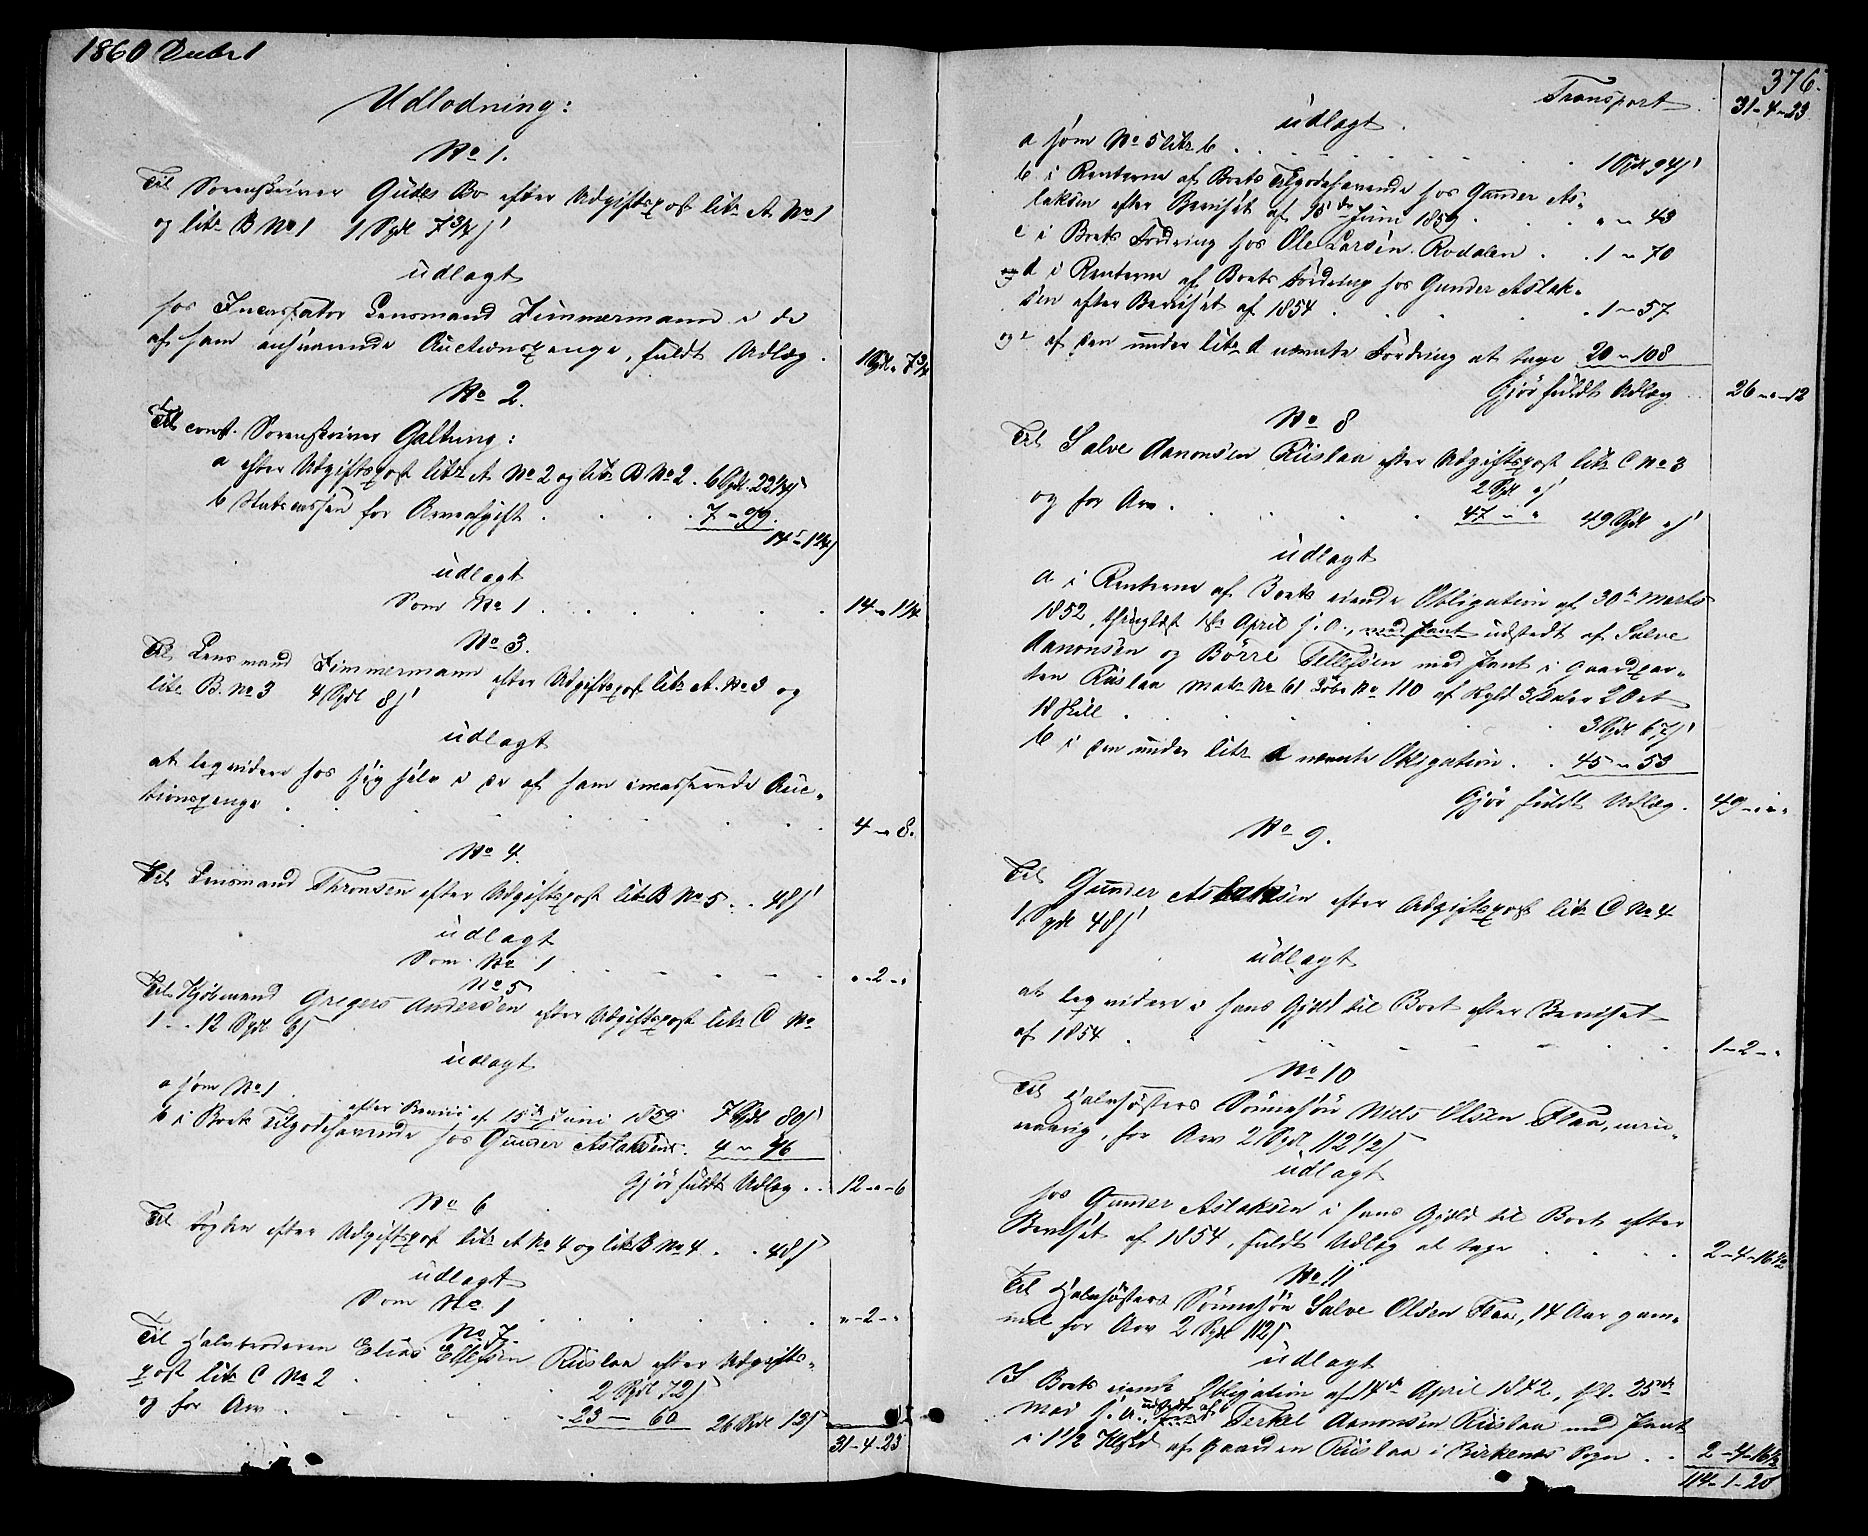 1860 Decbr 1
Udlodning:
No 1.
Til Sorenskriver Gudes Bo efter Udgiftspost litr A No 1
og litr B No 1 1 Spdl 7 3/4 s
udlagt
hos Incassator Lensmand Zimmermann i de
af ham ansvarende Auctionspenge, fuldt Udlæg . 1 Spdl " 7 3/4
No 2.
Til const. Sorenskriver Galtung:
a efter Udgiftspost litr A No 2 og litr B No 2 . 6 Spdl. 22 1/4 s
b Statscassen for Arveafgift . . . . 7 " 99.
14 " 1 1/4 s
udlagt
Som No 1 . . . . . . . 14 " 1 1/4
No 3.
Til Lensmand Zimmermann efter Udgiftspost litr A. No 3 og
litr B. No 3 4 Spdl 8 s
udlagt
at liqvidere hos sig selv i de af ham incasserede Auc-
tionspenge . . . . . . 4 " 8.
No 4.
Til Lensmand Thronsen efter Udgiftspost litr B No 5 . . 48 s
udlagt
Som No 1 . . . . . " - 2 - "
No 5
Til Kjøbmand Gregers Andersen efter Udgiftspost litr C No
1 . . 12 Spdl 6 s
udlagt
a som No 1 . . 7 Spdl 80 s
efter Beviis af 15de Juni 1859
b i Boets Tilgodehavende hos Gunder Aslaksen . 4 " 46
Gjør fuldt Udlæg . . 12 - " - 6
No 6
Til efter Udgiftspost litr A No 4 og litr B No 4 . . 48 s
udlagt
Som No 1 . . . . . . " - 2 - "
No 7.
Til Halvbroderen Elias Ellefsen Riislaa efter Udgifts-
post litr C No 2 . . . . 2 Spdl 72 s
og for Arv . . . . 23 - 60 26 Spdl 12 s
31 - 4 - 23
376.
Transport . 31 - 4 - 23
udlagt.
a som No 5 litr b . . . . . . 1 Spdl 94 s
b i Renterne af Boets Tilgodehavende hos Gunder As-
laksen efter Beviset af 15de Juni 1859 . . . " " 43
c i Boets Fordring hos Ole Larsen Rodalen . . 1 " 70
og d i Renterne af Boets Fordring hos Gunder Aslak-
sen efter Beviset af 1854 . . . . 1 " 57
og e af den under litr d nævnte Fordring at tage 20 " 108
Gjør fuldt Udlæg . . 26 - " - 12
No 8
Til Salve Aanonsen Riislaa efter Udgiftspost litr C No 3
2 Spdl " s
og for Arv . . . . . 47 " " 49 Spdl " s
udlagt
a i Renterne af Boets eiende Obligation af 30te Marts
1852, thinglæst 1ste April s. A., med Pant udstedt af Salve
Aanonsen og Börre Tellefsen med Pant i Gaardpar-
ten Riislaa Matr No 61 Løbe No 110 af Skyld 3 Daler 2 Ort
18 Skill . . . . . . . 3 Spdl 67 s
b i den under litr a nævnte Obligation . . 45 " 53
Gjør fuldt Udlæg . 49 - " - "
No 9.
Til Gunder Aslaksen efter Udgiftspost litr C No 4
1 Spdl 48 s
udlagt
at liqvidere i hans Gjæld til Boet efter Beviset
af 1854 . . . . . . . 1 - 2 - "
No 10
Til Halvsøsters Sønnesøn Niels Olsen Flaa, min-
reaarig, for Arv 2 Spdl 112 1/2 s
udlagt
hos Gunder Aslaksen i hans Gjæld til Boet efter
Beviset af 1854, fuldt Udlæg at tage . . . . 2 - 4 - 16 1/2
No 11
Til Halvsøsters Sønnesøn Salve Olsen Flaa, 14 Aar gam-
mel for Arv 2 Spdl 112 s
udlagt
I Boets eiende Obligation af 14de April 1842, thl. 25de
Mai s. A., udstedt af Terkel Aanonsen Riislaa med Pant
i 1 1/2 af Gaarden Riislaa i Birkenæs Sogn . . 2 - 4 - 16 1/2
114 - 1 - 20